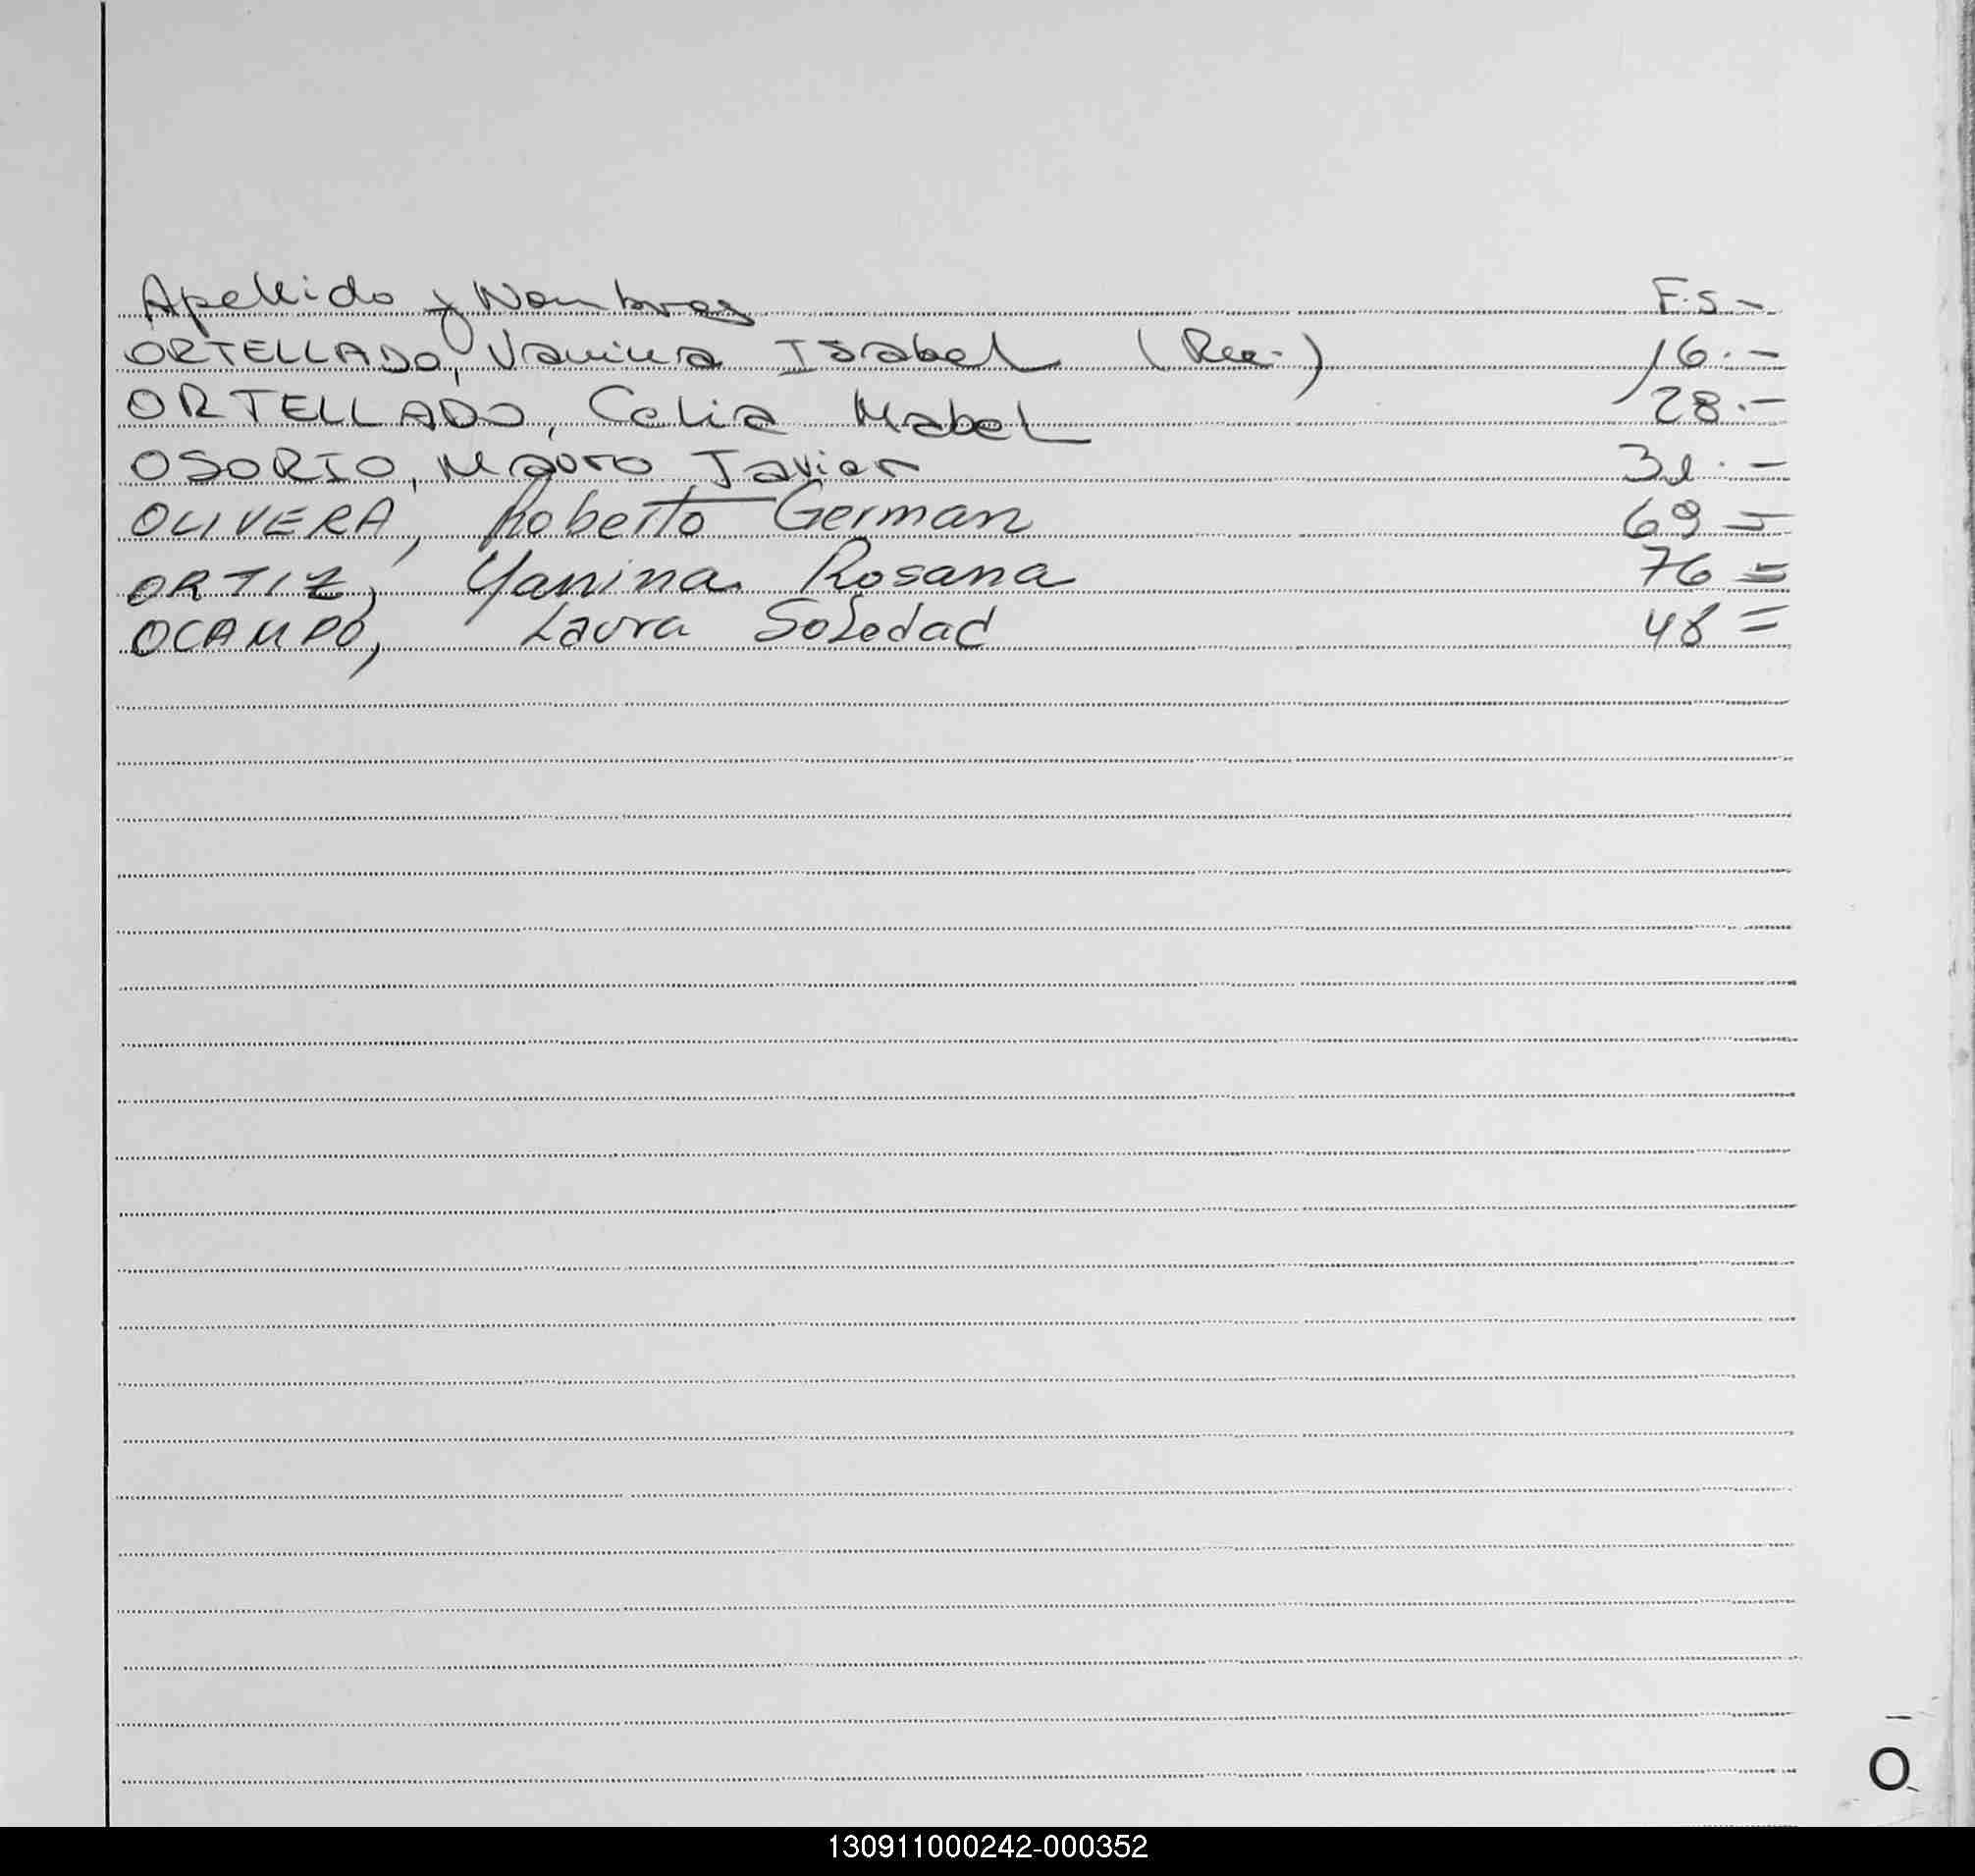 Apellido y Nombres F.S -
ORTELLADO, Vanina Isabel (Rec.) 16.-
ORTELLADO, Celia Mabel 28.-
OSORIO, Mauro Javier 31.-
OLIVERA, Roberto German 69=
ORTIZ, Yanina Rosana 76=
OCAMPO, Laura Soledad 48=
O
130911000242-000352